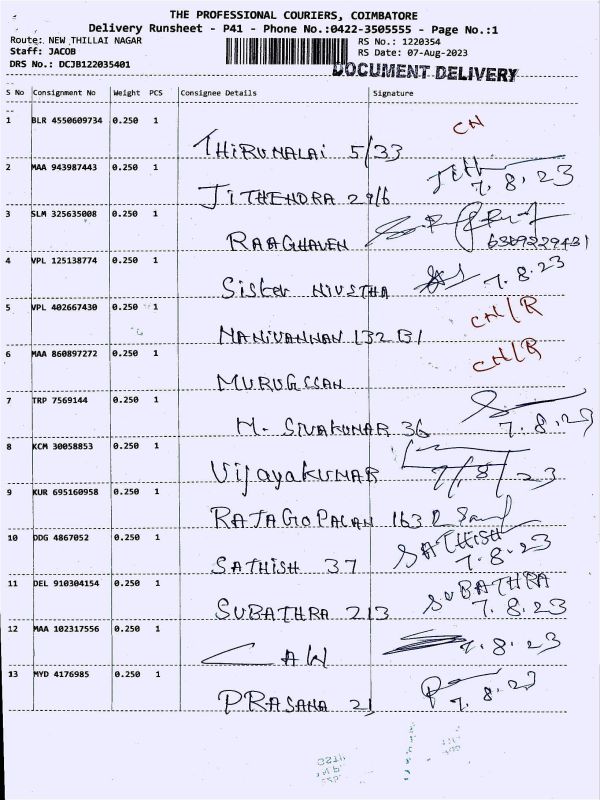 THE PROFESSIONAL COURIERS, COIMBATORE
Delivery Runsheet - P41 - Phone No.:0422-3505555 - Page No.:1
Route: NEW THILLAI NAGAR
RS No.: 1220354
Staff: JACOB
RS Date: 07-Aug-2023
DRS No.: DCJB122035401
DOCUMENT DELIVERY
S No Consignment No Weight PCS Consignee Details Signature
1 BLR 4550609734 0.250 1
THIRUMALAI 5/33 CN
2 MAA 943987443 0.250 1
JITHENDRA 29/6 7.8.23
3 SLM 325635008 0.250 1
RAAGHAVEN 6369229431
4 VPL 125138774 0.250 1
Sister NIVETHA 7.8.23
5 VPL 402667430 0.250 1
MANIVANNAN 132 B1 CN/R
6 MAA 860897272 0.250 1
MURUGESAN CN/R
7 TRP 7569144 0.250 1
M. SIVAKUMAR 36 7.8.23
8 KCM 30058853 0.250 1
VijayakUMAR 7/8/23
9 KUR 695160958 0.250 1
RAJAGOPALAN 163
10 DDG 4867052 0.250 1
SATHISH 37 SATHISH 7.8.23
11 DEL 910304154 0.250 1
SUBATHRA 213 SUBATHRA 7.8.23
12 MAA 102317556 0.250 1
LAW 7.8.23
13 MYD 4176985 0.250 1
PRASANA 21 7.8.23